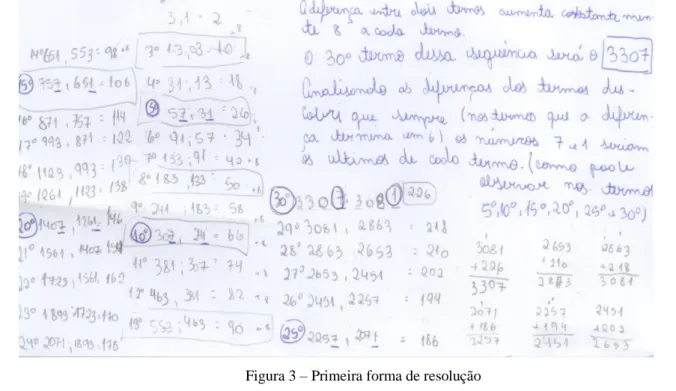 3,1 = 2
14º 651, 553 = 98
3º 13, 03 = 10
15º 757, 651 = 106
4º 31, 13 = 18
16º 871, 757 = 114
5º 57, 31 = 26
17º 993, 871 = 122
6º 91, 57 = 34
18º 1123, 993 = 130
7º 133, 91 = 42
19º 1261, 1123 = 138
8º 183, 133 = 50
20º 1407, 1261, 146
9º 241, 183 = 58
21º 1561, 1407 154
10º 307, 24 = 66
22º 1723, 1561, 162
11º 381, 307 = 74
23º 1893 1723 = 170
12º 463, 381 = 82
24º 2071, 1893, 178
13º 553, 463 = 90
A diferença entre dois termos aumenta constantemen-
te 8 a cada termo.
O 30º termo dessa sequência será o 3307
Analisando as diferenças dos termos des-
cobri que sempre (nos termos que a diferen-
ça termina em 6) os números 7 e 1 seriam
os ultimos de cada termo. (como pode
observar nos termos
5º, 10º, 15º, 20º, 25º e 30º)
30º 3307, 3081 226
29º 3081, 2863 = 218
28º 2863 2653 = 210
27º 2653, 2451 = 202
26º 2451, 2257 = 194
25º 2257, 2071 = 186
3081 2653 2863
+226 +210 +218
3307 2863 3081
2071 2257 2451
+186 +194 +202
2257 2451 2653
Figura 3 – Primeira forma de resolução